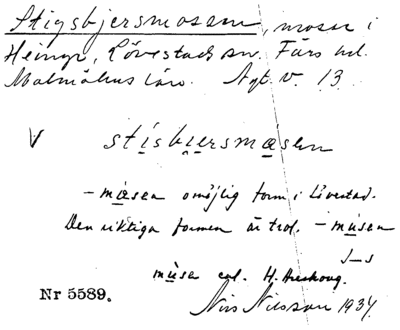 Stigsbjersmosen, mosse i
Heinge, Lövestads sn. Färs hd.
Malmöhus län. Agt V. 13
V stisbjersmosen
-mosen omöjlig form i Lövestad.
Den riktiga formen är trol. -musen
J–s
musa enl. H. Areskoug.
Nr 5589. Nils Nilsson 1934.